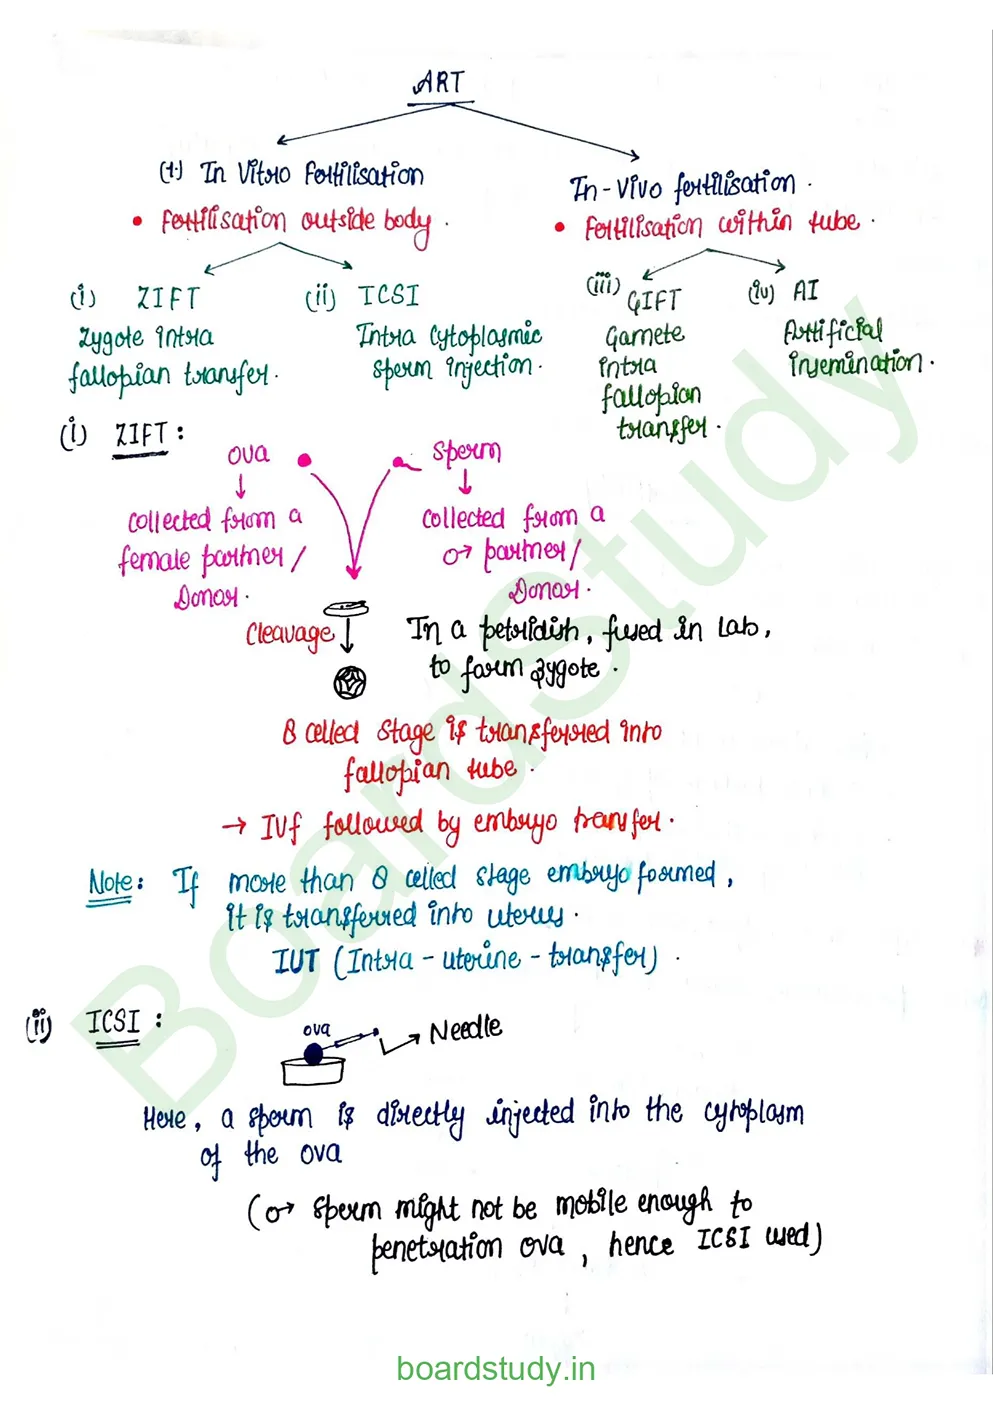 ART
(1.) In Vitro Fertilisation
In-Vivo fertilisation.
• Fertilisation outside body.
• Fertilisation within tube.
(i) ZIFT
Zygote intra
fallopian transfer.
(ii) ICSI
Intra Cytoplasmic
sperm injection.
(iii) GIFT
Gamete
intra
fallopian
transfer.
(iv) AI
Artificial
insemination.
(i) ZIFT:
ova
Sperm
collected from a
female partner/
Donor.
collected from a
♂ partner/
Donor.
Cleavage
In a petridish, fused in lab,
to form zygote.
8 celled stage is transferred into
fallopian tube.
→ IVF followed by embryo transfer.
Note: If more than 8 celled stage embryo formed,
it is transferred into uterus.
IUT (Intra-uterine-transfer).
(ii) ICSI:
ova
Needle
Here, a sperm is directly injected into the cytoplasm
of the ova
(♂ sperm might not be mobile enough to
penetration ova, hence ICSI used)
Boardstudy
boardstudy.in